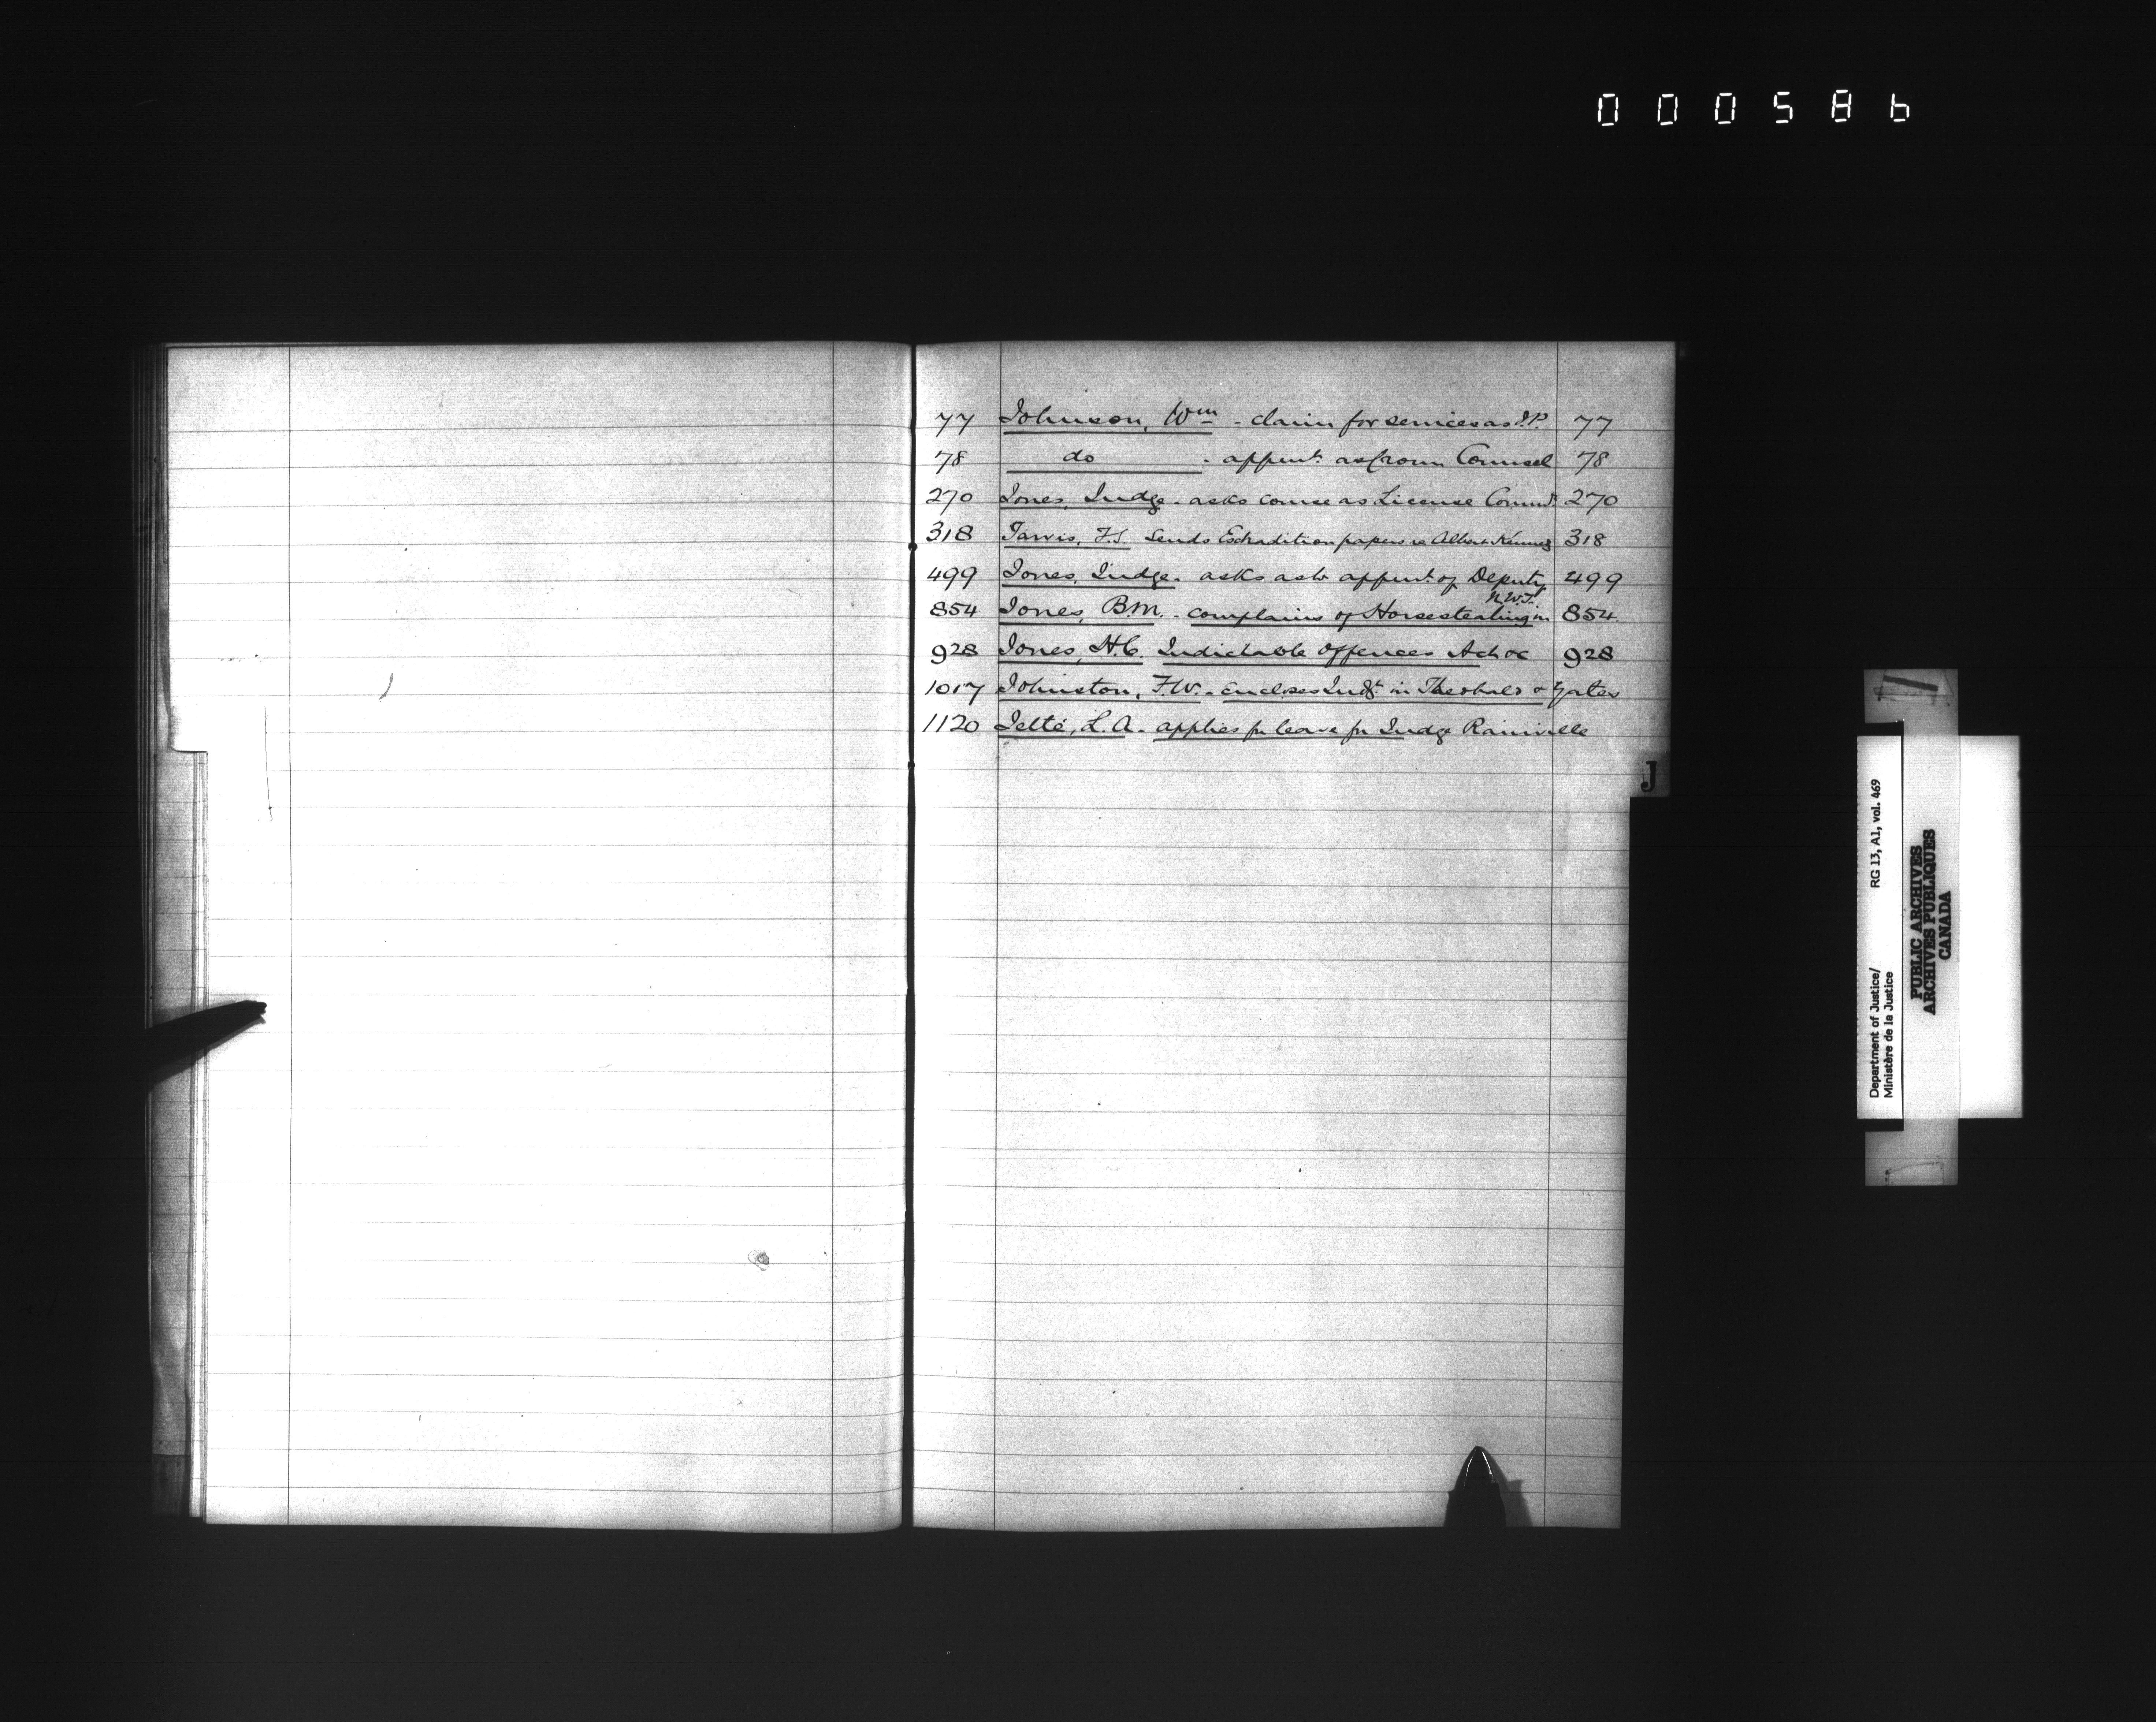 000586
77 Johnson, Wm - claim for services as J.P. 77
78 do - appmt. as Crown Counsel 78
270 Jones, Judge - asks course as License Commr. 270
318 Jarvis, F.S. Sends Extradition papers re Albert 318
499 Jones, Judge - asks as to appmt. of Deputy 499
N.W.T.
854 Jones, B.M. - complains of Horsestealing in 854
928 Jones, H.C. Indictable Offences Act &c 928
1017 Johnston, F.W. - encloses Judgt. in Theobald v Yates
1120 Jetté, L.A. - applies for leave for Judge Rainville
J
Department of Justice/ RG 13, A1, vol. 469
Ministère de la Justice
PUBLIC ARCHIVES
ARCHIVES PUBLIQUES
CANADA